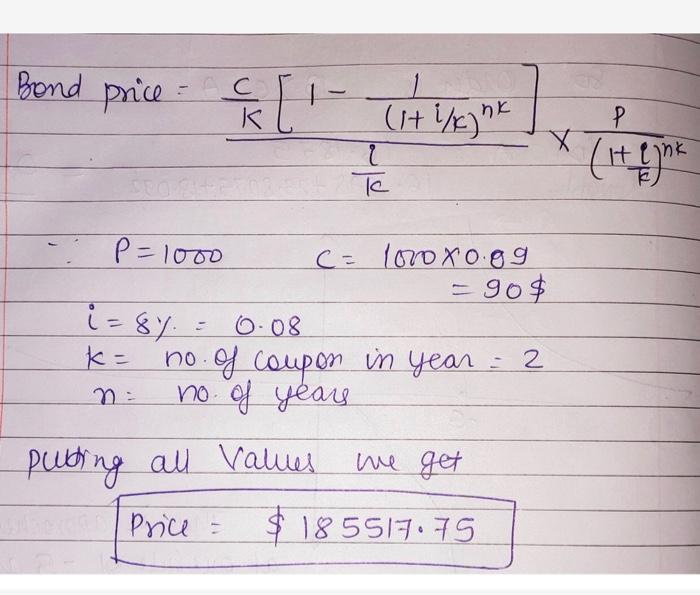 Bond price = C/K [ 1 - 1/(1+i/k)^nk ] / i/k × P/(1+i/k)^nk
∵ P = 1000 C = 1000 X 0.09
= 90 $
i = 8 %. = 0.08
k = no. of coupon in year = 2
n = no. of years
putting all Values we get
Price = $ 185517.75